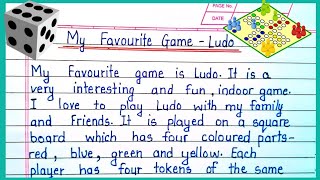 PAGE No.
My Favourite Game - Ludo
My Favourite game is Ludo. It is a
very interesting and fun, indoor game.
I love to play Ludo with my family
and Friends. It is played on a square
board which has four coloured parts-
red, blue, green and yellow. Each
player has four tokens of the same